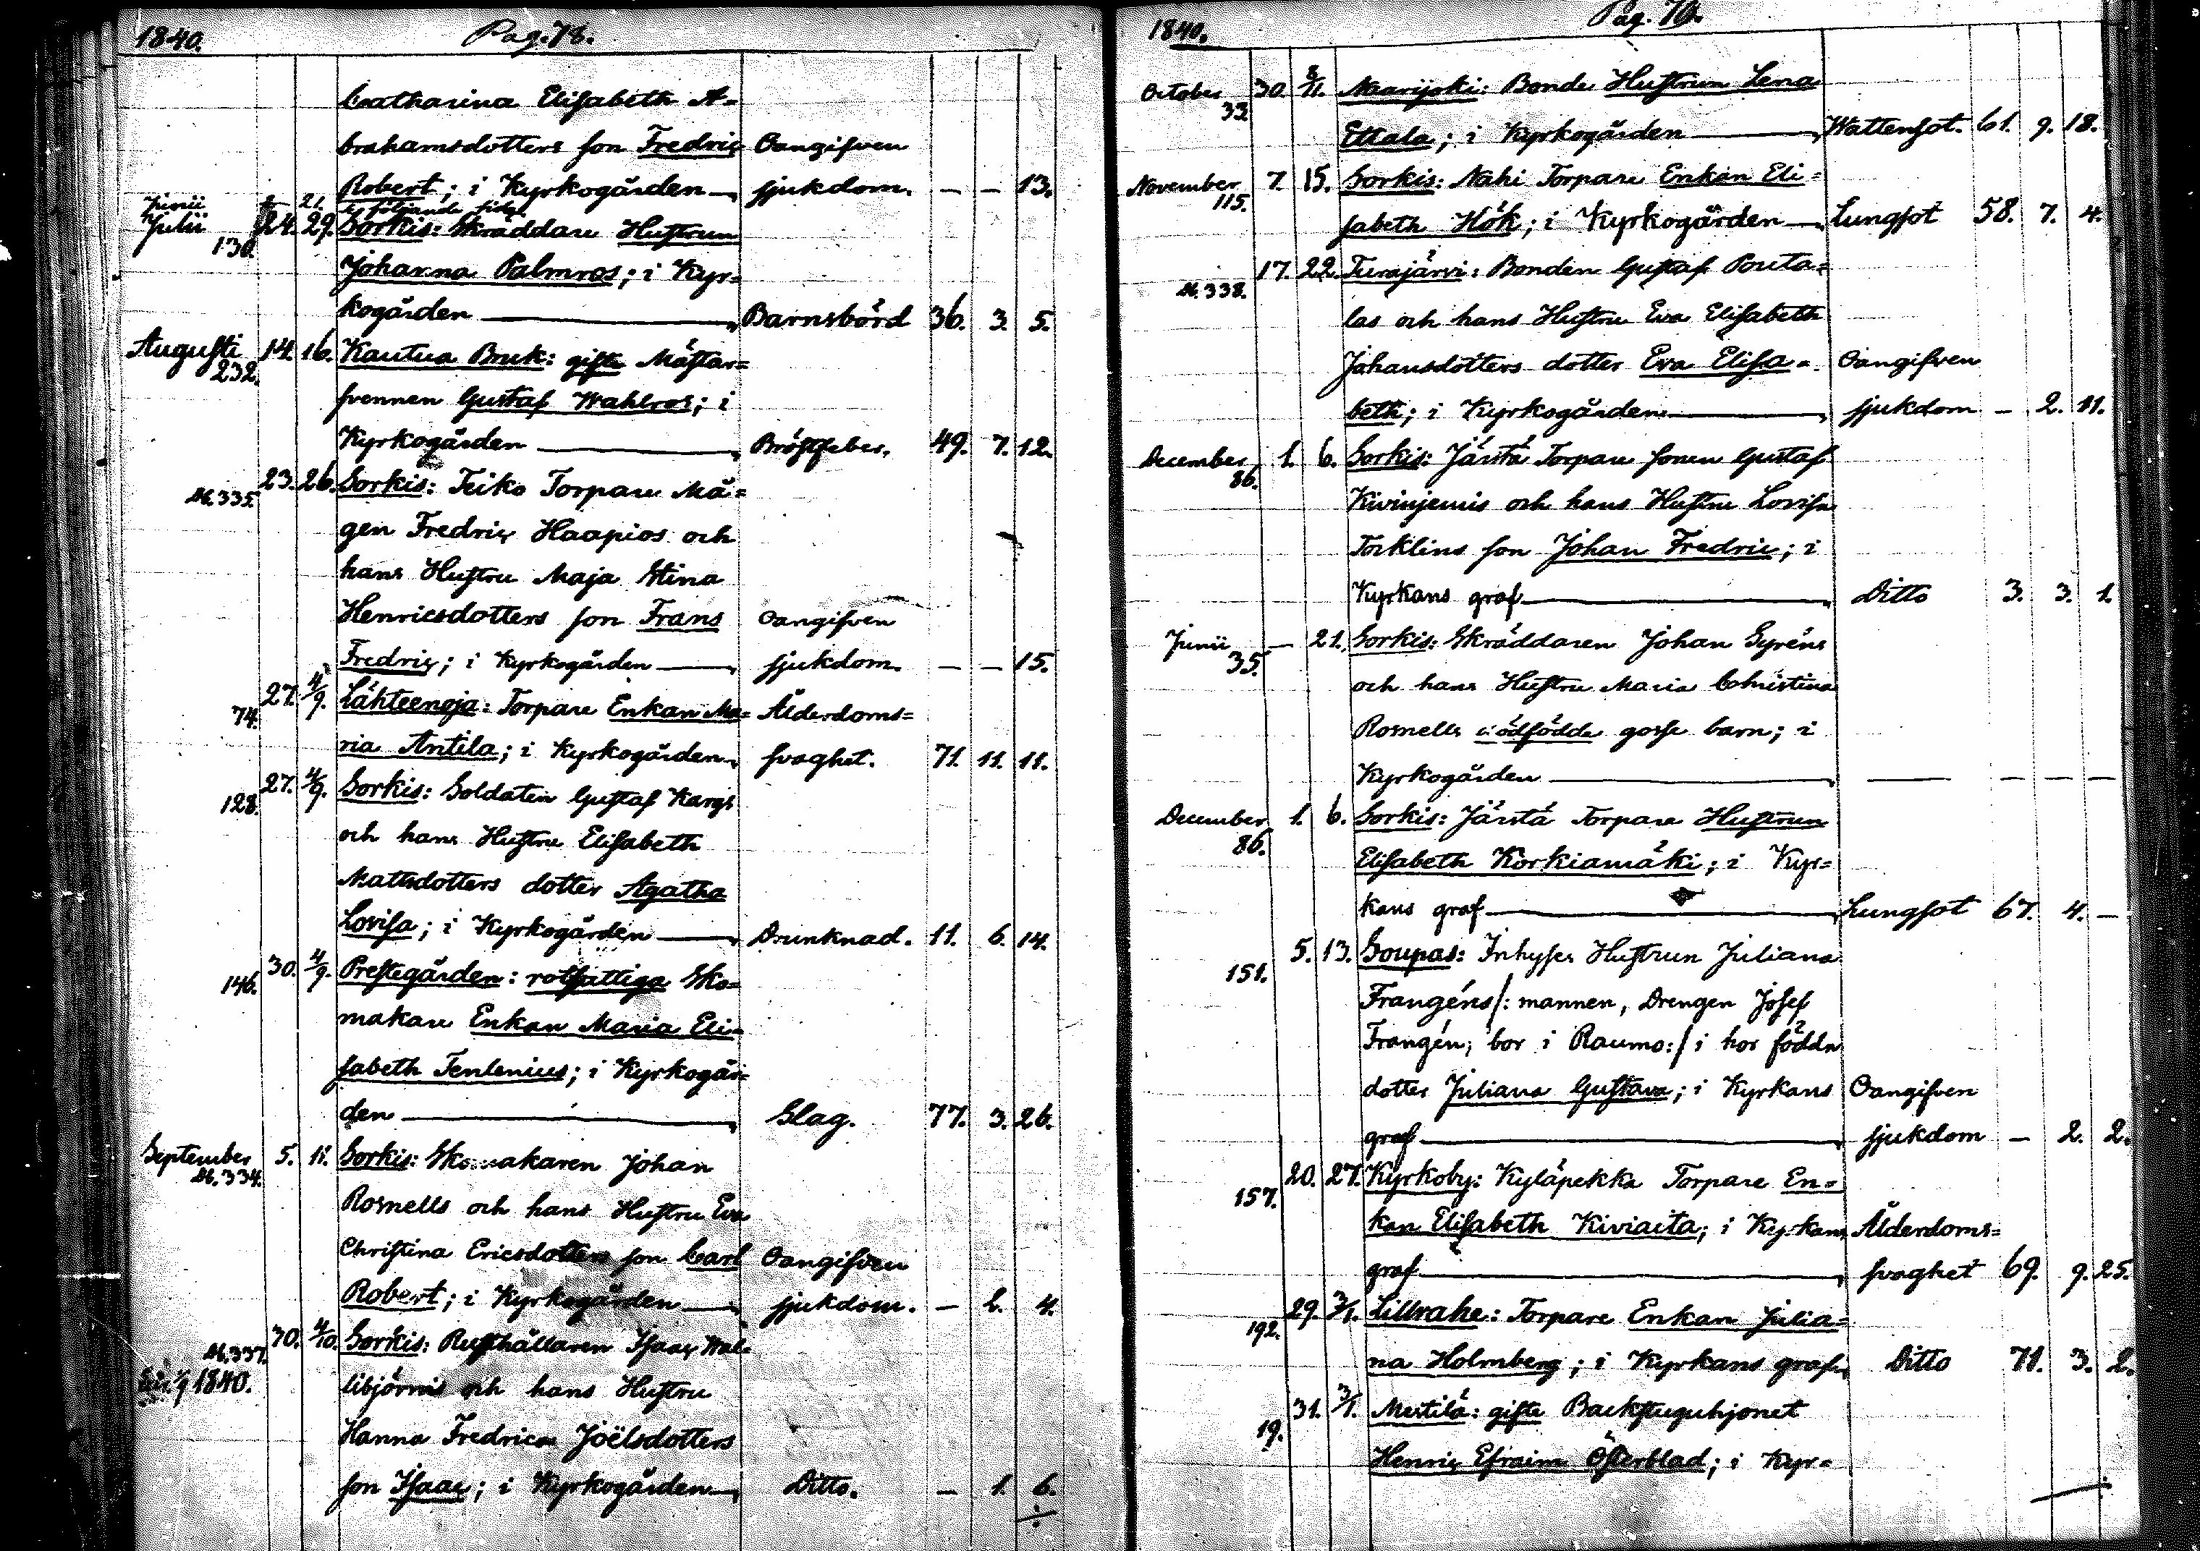 1840. Pag. 78.
Catharina Elisabeth A-
brahamsdotters son Fredric Oangifven
Robert; i Kyrkogården sjukdom. — — 13.
Junii 21. följande sida
Julii 24. 29. Sorkis: Skräddare Hustrun
130.
Johanna Palmros; i Kyr=
kogården Barnsbörd 36. 3. 5.
Augusti 14. 16. Kautua Bruk: gifte Mästar=
232.
svennen Gustaf Wahlros; i
Kyrkogården Bröstfeber. 49. 7. 12.
23. 26. Sorkis: Teiko Torpare Må=
M.335.
gen Fredric Haapios och
hans Hustru Maja Stina
Henricsdotters son Frans Oangifven
Fredric; i Kyrkogården sjukdom. — — 15.
27. 4/9. Lähteenoja: Torpare Enkan Ma= Ålderdoms=
74.
ria Antila; i Kyrkogården svaghet. 71. 11. 11.
27. 4/9. Sorkis: Soldaten Gustaf Kargs
128.
och hans Hustru Elisabeth
Mattsdotters dotter Agatha
Lovisa; i Kyrkogården Drunknad. 11. 6. 14.
30. 4/9. Prestegården: rotfattiga Sko=
146.
makare Enkan Maria Eli=
sabeth Tenlenius; i Kyrkogår=
den Slag. 77. 3. 26.
September 5. 11. Sorkis: Skomakaren Johan
M.334.
Rosnells och hans Hustru Eva
Christina Ericsdotters son Carl Oangifven
Robert; i Kyrkogården sjukdom. — 2. 4.
30. 4/10. Sorkis: Rusthållaren Isaac Wal=
M.337.
1840. libjörnis och hans Hustru
Hanna Fredrica Joëlsdotters
son Isaac; i Kyrkogården Ditto. — 1. 6.
1840. Pag. 79.
October 30. 8/11. Naarijoki: Bonde Hustrun Lena
33.
Ettala; i Kyrkogården Wattensot. 61. 9. 18.
November 7. 15. Sorkis: Nahi Torpare Enkan Eli=
115.
sabeth Hök; i Kyrkogården Lungsot 58. 7. 4.
17. 22. Turajärvi: Bonden Gustaf Pouta=
M.338.
las och hans Hustru Eva Elisabeth
Johansdotters dotter Eva Elisa= Oangifven
beth; i Kyrkogården sjukdom — 2. 11.
December 1. 6. Sorkis: Järstä Torpare sonen Gustaf
86.
Kivinjemis och hans Hustru Lovisa
Torklins son Johan Fredric; i
Kyrkans graf Ditto 3. 3. 1.
Junii — 21. Sorkis: Skräddaren Johan Syréns
35.
och hans Hustru Maria Christina
Rosnells dödfödde gosse barn; i
Kyrkogården — — — —
December 1. 6. Sorkis: Järstä Torpare Hustrun
86.
Elisabeth Korkiamäki; i Kyr=
kans graf Lungsot 67. 4. —
5. 13. Soupas: Inhyses Hustrun Juliana
151.
Frangéns /: mannen, Drengen Josef
Frangén, bor i Raumo:/ i hor födda
dotter Juliana Gustava; i Kyrkans Oangifven
graf sjukdom — 2. 2.
20. 27. Kyrkoby: Kyläpekka Torpare En=
157.
kan Elisabeth Kiviaita; i Kyrkans Ålderdoms=
graf svaghet 69. 9. 25.
29. 3/1. Lillrahe: Torpare Enkan Julia=
192.
na Holmberg; i Kyrkans graf Ditto 71. 3. 2.
31. 3/1. Mestilä: gifte Backstuguhjonet
19.
Henric Efraim Österblad; i Kyr=